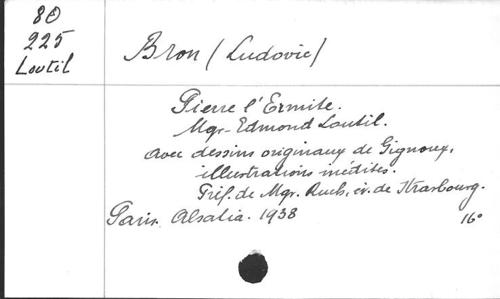 80
225
Loutil
Bron (Ludovic)
Pierre l'Ermite.
Mgr Edmond Loutil.
avec dessins originaux de Gignoux,
illustrations inédites.
Préf. de Mgr. Ruch, év. de Strasbourg.
Paris. Alsatia. 1938
16°